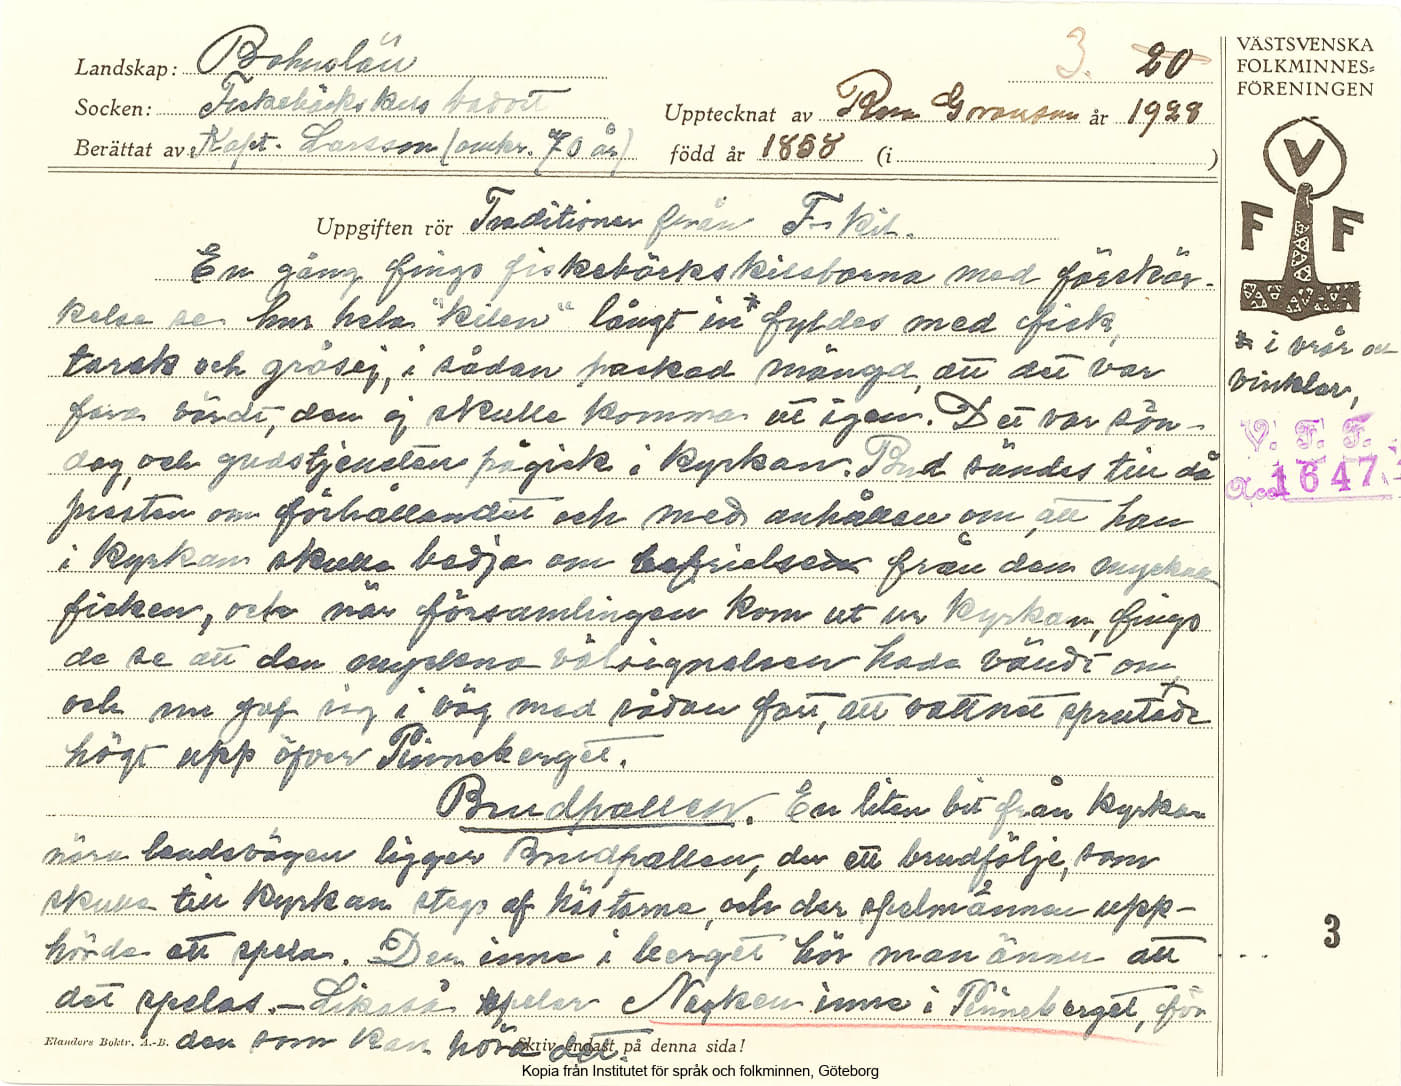 Landskap: Bohuslän
Socken: Fiskebäckskils badort
Berättat av: Kapt. Larsson (omkr. 70 år)
3. 20
Upptecknat av Goranson år 1928
född år 1858 (i )
VÄSTSVENSKA
FOLKMINNES=
FÖRENINGEN
V
F F
Uppgiften rör Traditioner från F-kil.
En gång fingo fiskebäckskilsborna med förskräc-
kelse se hur hela "kilen" långt in* fyldes med fisk,
torsk och gråsej, i sådan packad mängd, att det var
fara värdt, den ej skulle komma ut igen. Det var sön-
dag, och gudstjensten pågick i kyrkan. Bud sändes till då
presten om förhållandet och med anhållan om, att han
i kyrkan skulle bedja om befrielsen från den myckna
fisken, och när församlingen kom ut ur kyrkan, fingo
de se att den myckna välsignelsen hade vändt om
och nu gaf sig i väg med sådan fart, att vattnet sprutade
högt upp öfver Pinneberget.
Brudpallen. En liten bit från kyrkan
nära landsvägen ligger Brudpallen, der ett brudfölje, som
skulle till kyrkan stego af hästarne, och der spelmännen upp-
hörde att spela. Der inne i berget hör man ännu att
det spelas. — Likaså spelar Necken inne i Pinneberget, för
den som kan höra det.
* i vrår och
vinklar,
V. F. F.
Acc. 1647
3
Elanders Boktr. A.-B.
Skriv endast på denna sida!
Kopia från Institutet för språk och folkminnen, Göteborg